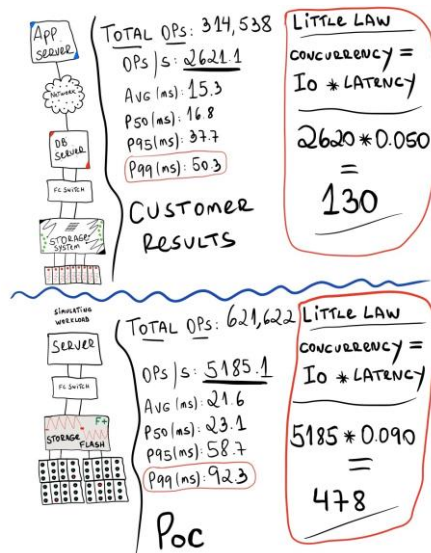 App
SERVER
NETWORK
DB
SERVER
FC SWITCH
STORAGE
SYSTEM
TOTAL OPs: 314,538
OPs/s: 2621.1
AVG (ms): 15.3
P50 (ms): 16.8
P95 (ms): 37.7
P99 (ms): 50.3
CUSTOMER
RESULTS
LITTLE LAW
CONCURRENCY =
Io * LATENCY
2620 * 0.050
=
130
SIMULATING
WORKLOAD
SERVER
FC SWITCH
F+
STORAGE
FLASH
TOTAL OPs: 621,622
OPs/s: 5185.1
AVG (ms): 21.6
P50 (ms): 23.1
P95 (ms): 58.7
P99 (ms): 92.3
PoC
LITTLE LAW
CONCURRENCY =
Io * LATENCY
5185 * 0.090
=
478